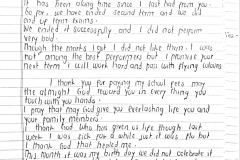 It has been along time since I last had from you.
So far, we have ended second term and we did
end up term exams.
We ended it successfully and I did not perform
very bad.
Though the marks I got I did not like them. I was
not among the best performers but I promise your
Next term I will work hard and pass with flying colours
I thank you for paying my school fees may
the almight God reward you in every thing you
touch with you hands.
I pray that may God give you Everlasting life you and
your family members.
I thank God who has given us life though last
week I was sick for a while just it was flu but
I thank God that healed me.
This month it was my birth day we did not celebrate it